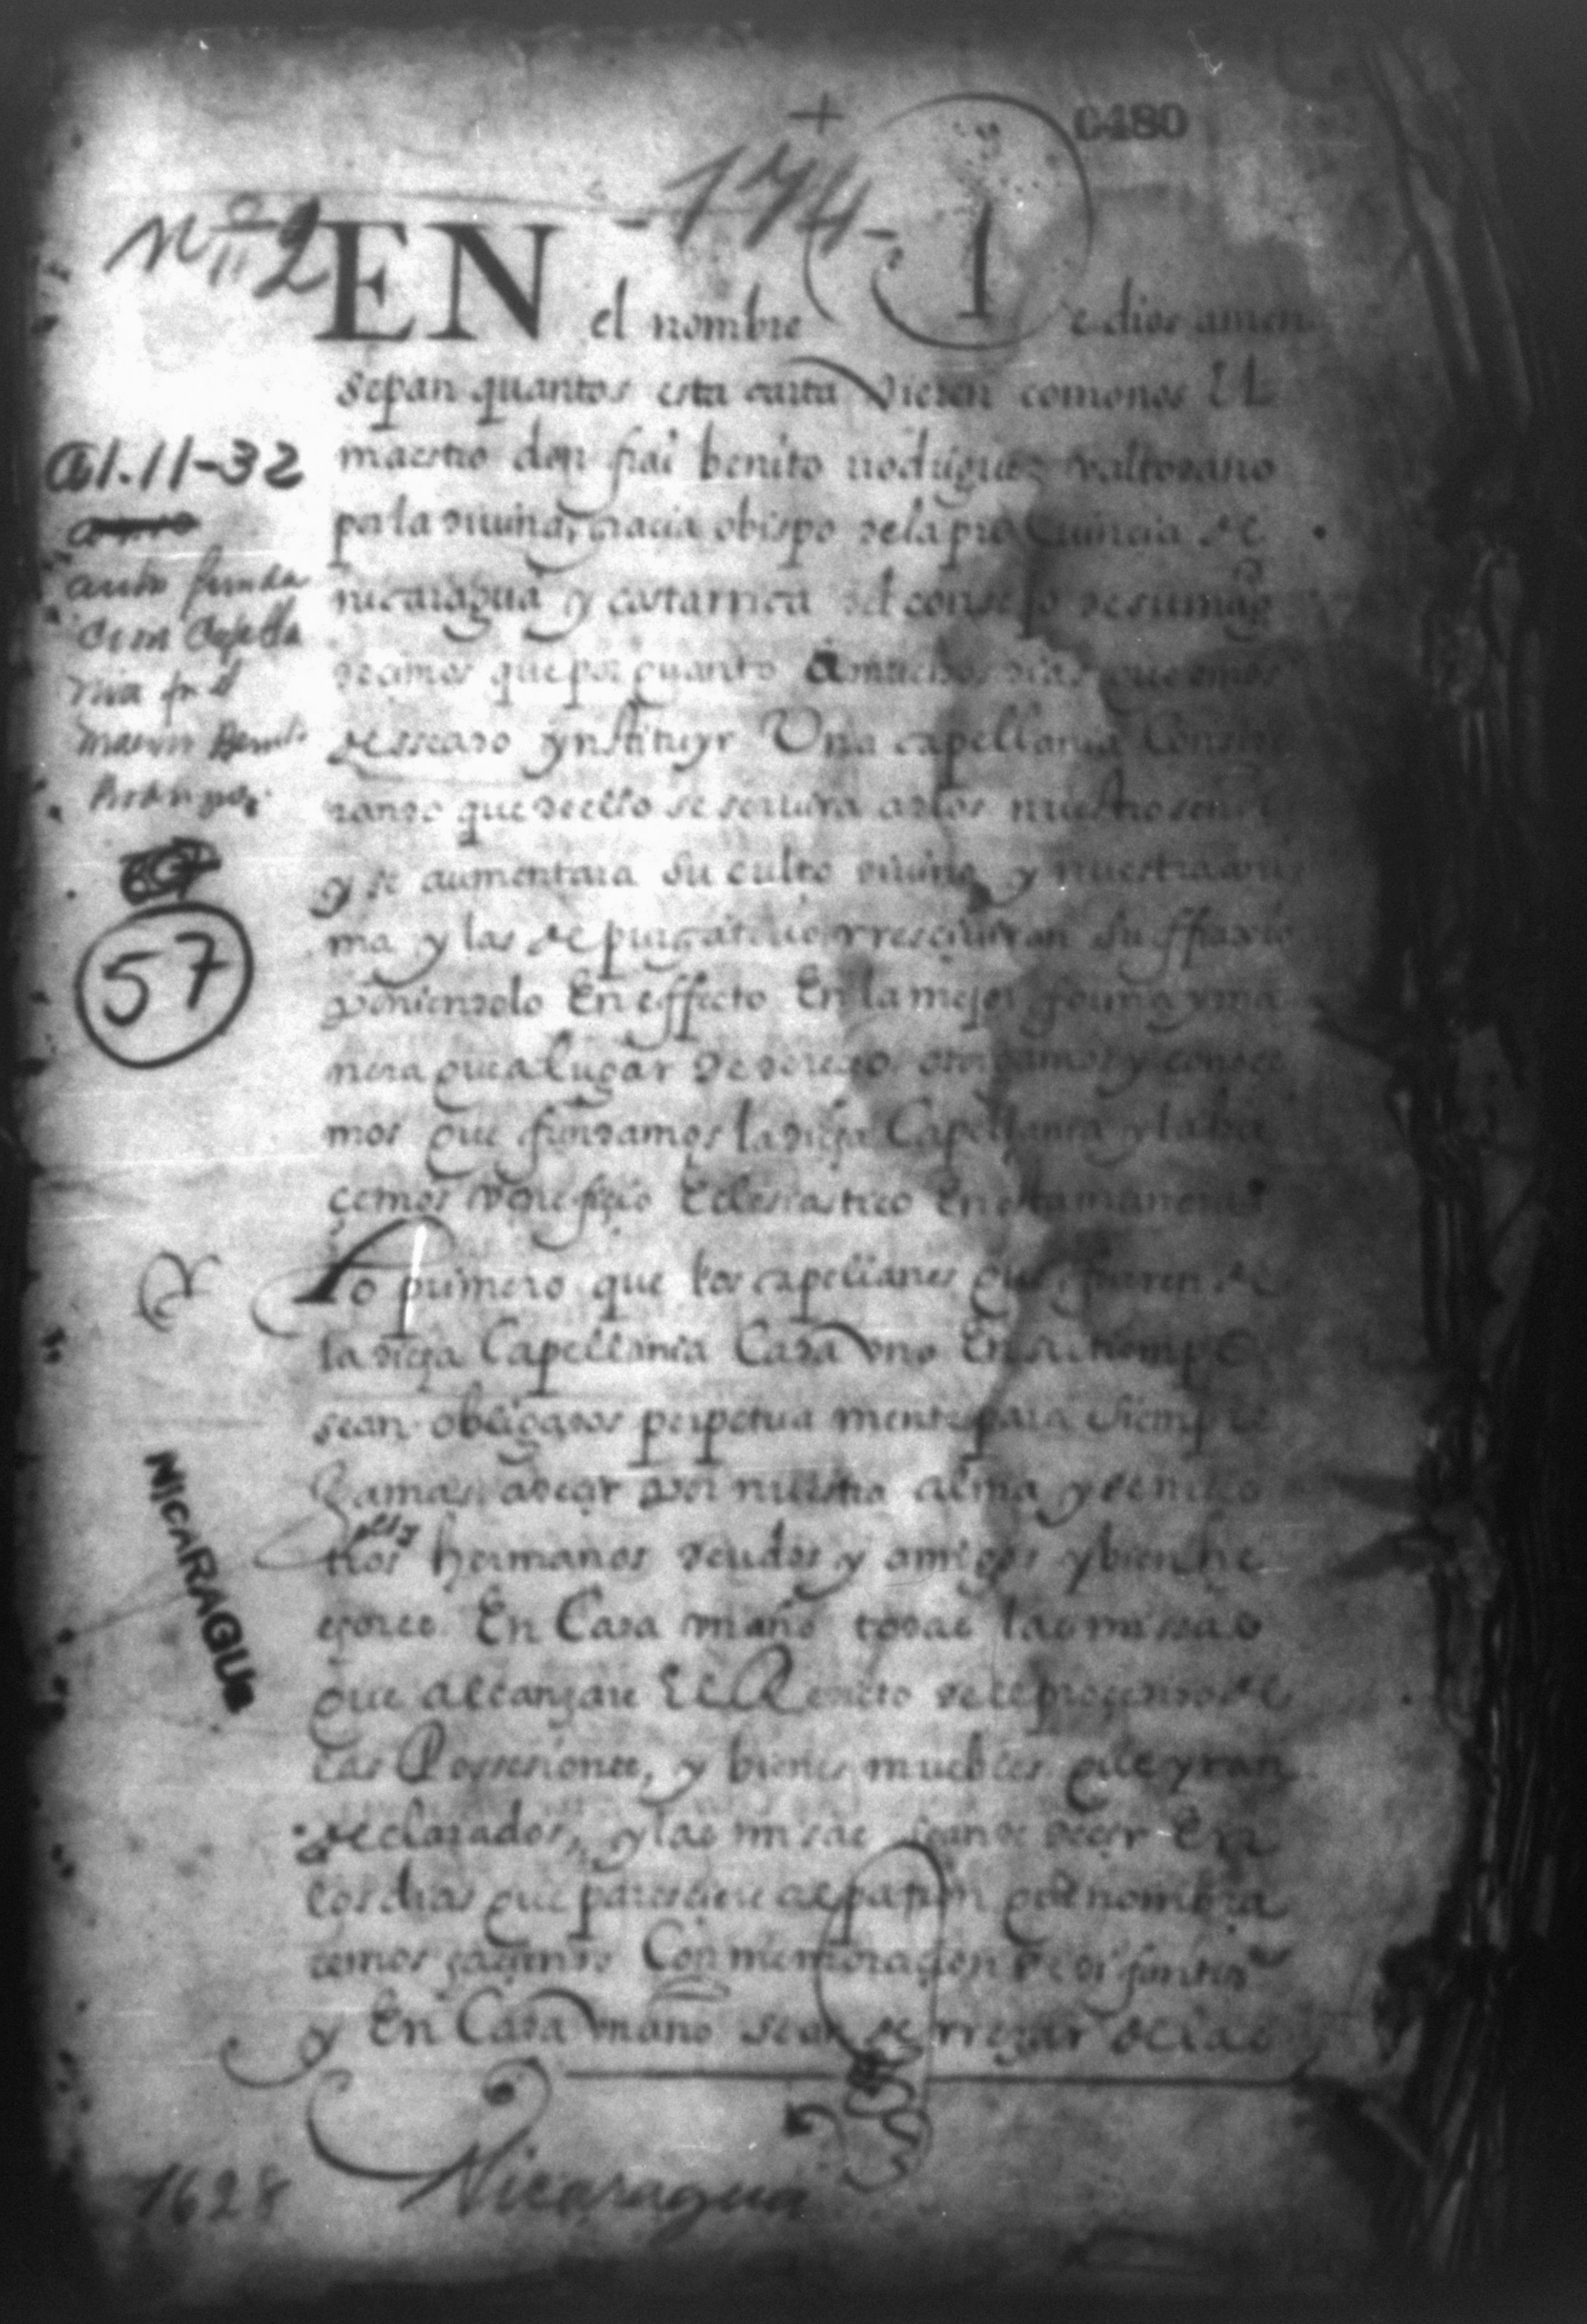 +
0480
nº 2
-174-
1
EN el nombre e dios amen
sepan quantos esta carta vieren comonos El
maestro don frai benito rrodriguez valtodano
por la diuina gracia obispo de la prouincia de
nicaragua y costarrica del consejo de su magd
decimos que por quanto a muchos dias que emos
desseado ynstituyr Una capellania Conside
rando que dello se seruira a dios nuestro señor
y se aumentara su culto diuino y nuestra ani
ma y las de purgatorio rresciuiran suffraxio
poniendolo En effecto En la mejor forma y ma
nera que a lugar de derecho otorgamos y conoce
mos que fundamos la dicha Capellania y la ha
cemos veneficio Eclesiastico en esta manera
Lo primero que los capellanes que fueren de
la dicha Capellania Cada vno En su tiempo
sean obligados perpetua mente para siempre
Jamas a decir por nuestra alma y de nues
tros hermanos deudos y amigos y bien he
chores En Cada vn año todas las missas
que alcanzare El Redito del proçenso de
las Possesiones, y bienes muebles que yran
declarados, y las misas sean de decir En
los dias que paresciere al patron que nombra
remos haçiendo Conmemoraçion de difuntos
y En Cada vn año sean de rrezar de las
a1.11-32
auto funda
de un Capella
nia
maestro Benito
Rodriguez
57
NICARAGUA
1628
Nicaragua